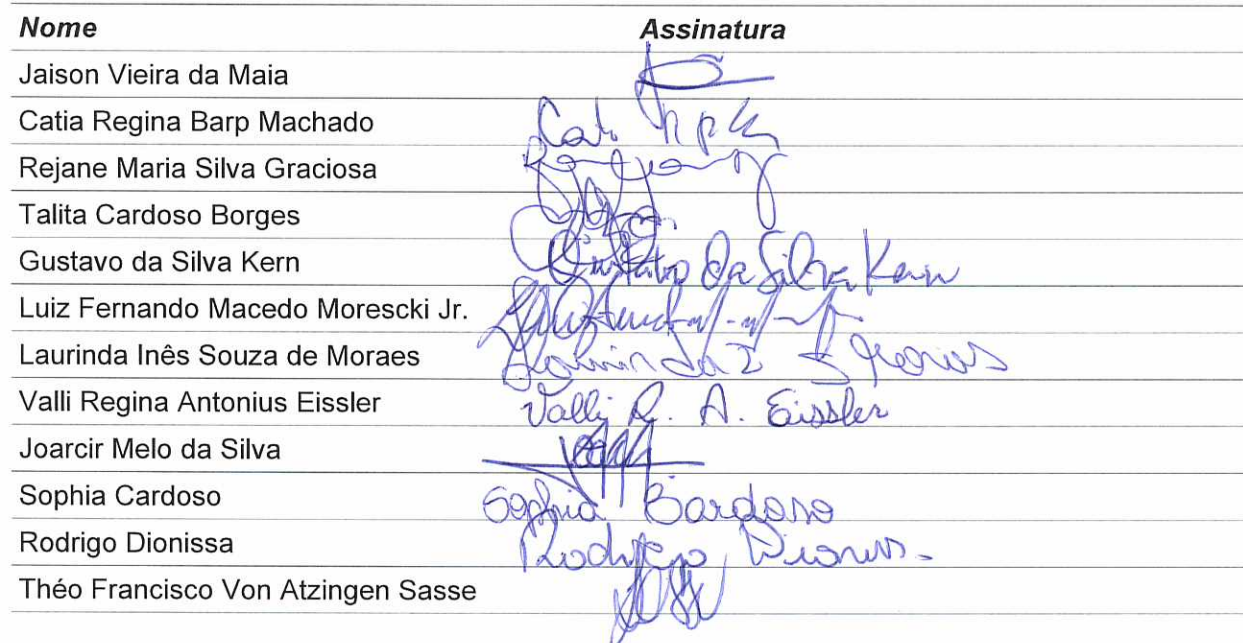 Nome Assinatura
Jaison Vieira da Maia
Catia Regina Barp Machado
Rejane Maria Silva Graciosa
Talita Cardoso Borges
Gustavo da Silva Kern Gustavo da Silva Kern
Luiz Fernando Macedo Morescki Jr.
Laurinda Inês Souza de Moraes
Valli Regina Antonius Eissler Valli R. A. Eissler
Joarcir Melo da Silva
Sophia Cardoso Sophia Cardoso
Rodrigo Dionissa Rodrigo
Théo Francisco Von Atzingen Sasse